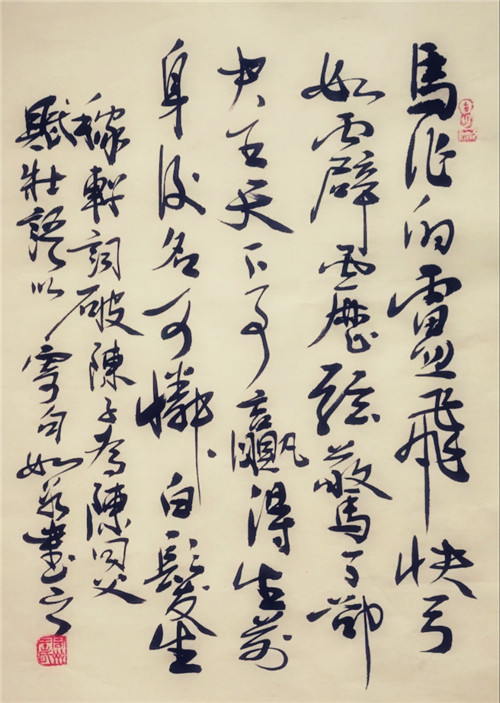 馬作的盧飛快弓
如霹靂弦驚了卻
君王天下事贏得生前
身後名可憐白髮生
稼軒詞破陳子為陳同父
賦壯語以寄 書之